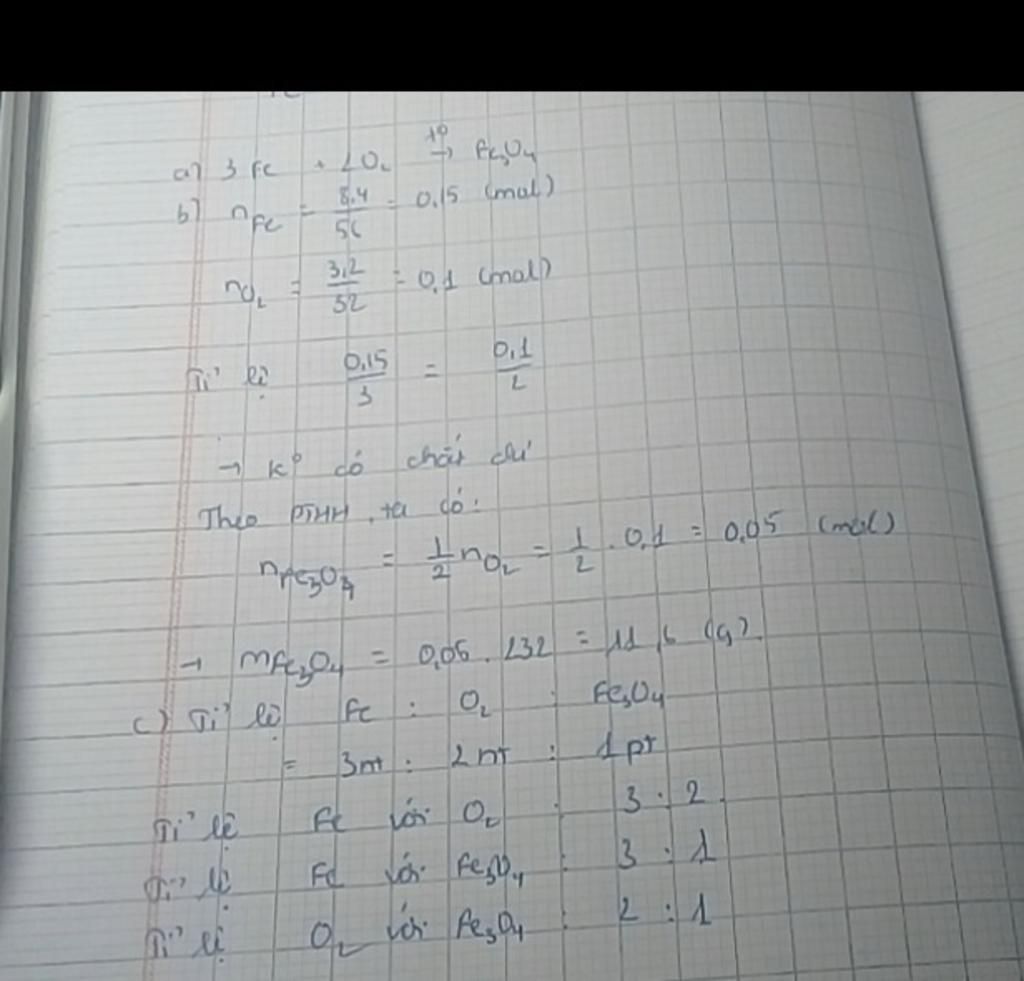 a) 3 Fe + 2O₂ →(t°) Fe₃O₄
b) nFe = 8,4/56 = 0,15 (mol)
nO₂ = 3,2/32 = 0,1 (mol)
Tỉ lệ 0,15/3 = 0,1/2
→ K° có chất dư
Theo PTHH, ta có:
nFe₃O₄ = 1/2 nO₂ = 1/2 . 0,1 = 0,05 (mol)
→ mFe₃O₄ = 0,05 . 232 = 11,6 (g).
c) Tỉ lệ Fe : O₂ : Fe₃O₄
= 3nt : 2nt : 1pt
Tỉ lệ Fe với O₂ : 3 : 2
Tỉ lệ Fe với Fe₃O₄ : 3 : 1
Tỉ lệ O₂ với Fe₃O₄ : 2 : 1